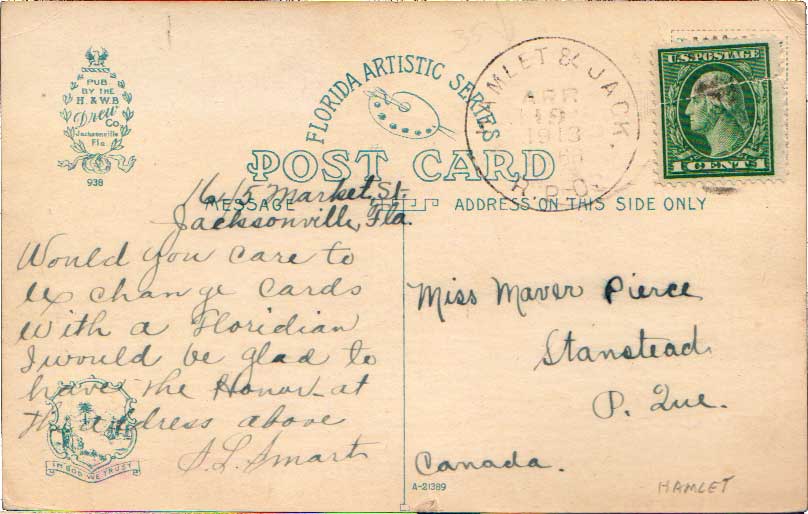 PUB.
BY THE
H. & W.B.
Drew
Co.
Jacksonville
Fla.
938
FLORIDA ARTISTIC SERIES
POST CARD
HAMLET & JACK.
APR
19
1913
R.P.O.
U.S. POSTAGE
1 CENT 1
MESSAGE
ADDRESS ON THIS SIDE ONLY
1615 Market, St.
Jacksonville, Fla.
Would you care to
ex change cards
with a Floridian
I would be glad to
have the Honor at
the address above
S. L. Smart
IN GOD WE TRUST
Miss Maver Pierce
Stanstead
P. Que.
Canada.
A-21389
HAMLET